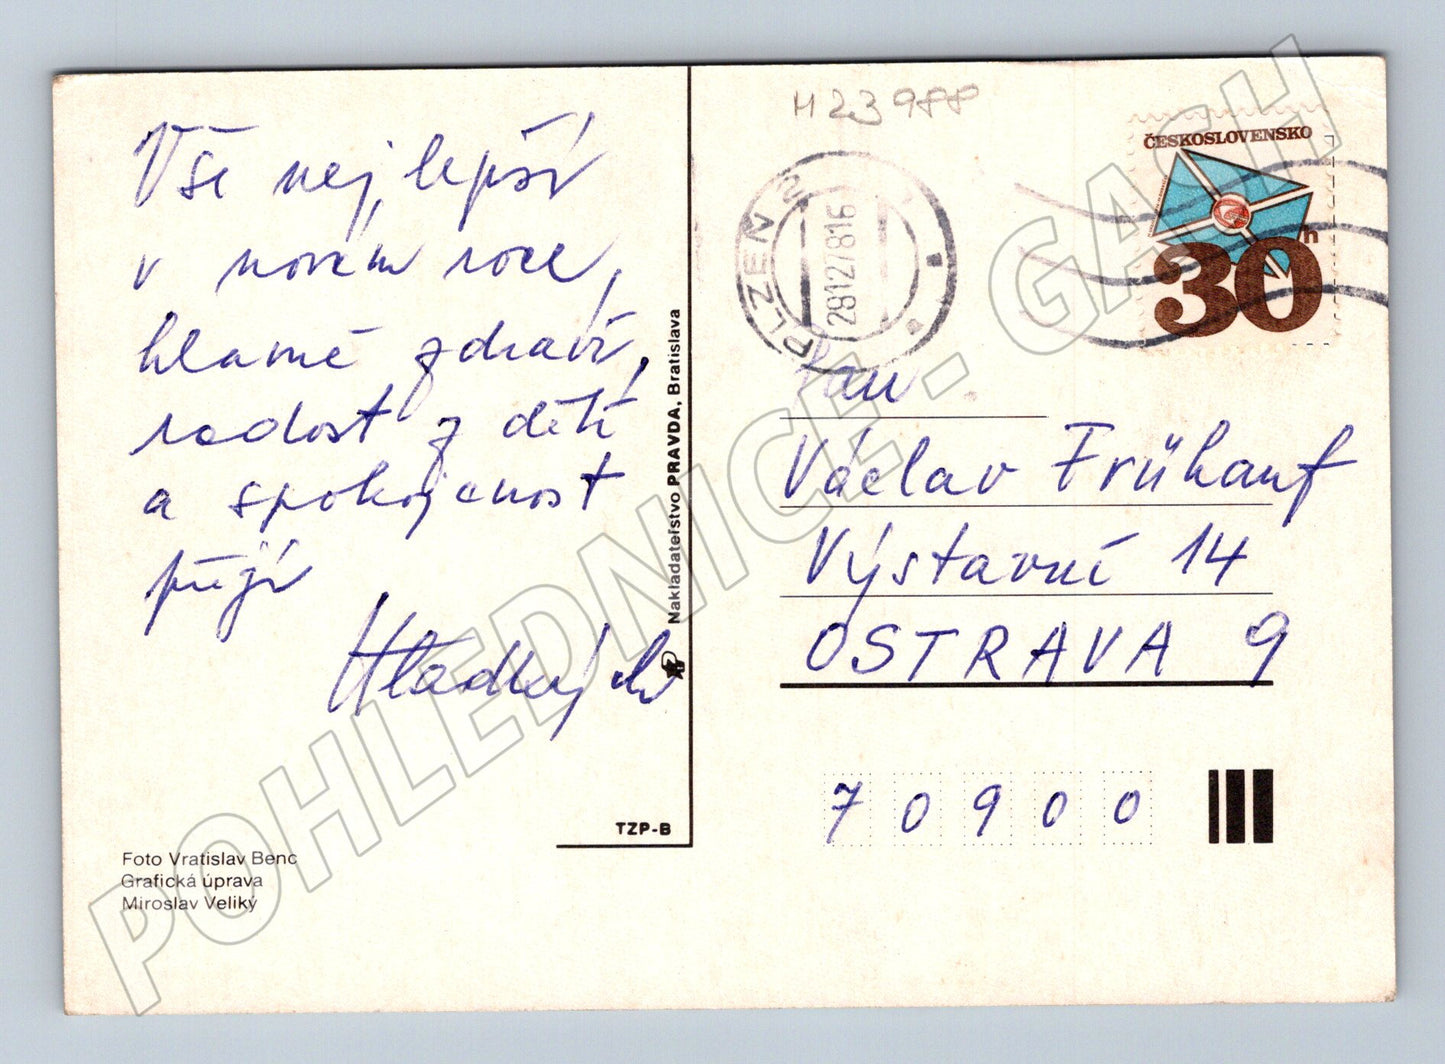 Vše nejlepší
v novém roce,
hlavně zdraví,
radost z dětí
a spokojenost
přejí
Foto Vratislav Benc
Grafická úprava
Miroslav Veliký
TZP-B
Nakladateľstvo PRAVDA, Bratislava
M 23 988
PLZEŇ 2
291278 16
ČESKOSLOVENSKO
30 h
Pan
Václav Frühauf
Výstavní 14
OSTRAVA 9
70900
POHLEDNICE - GASH